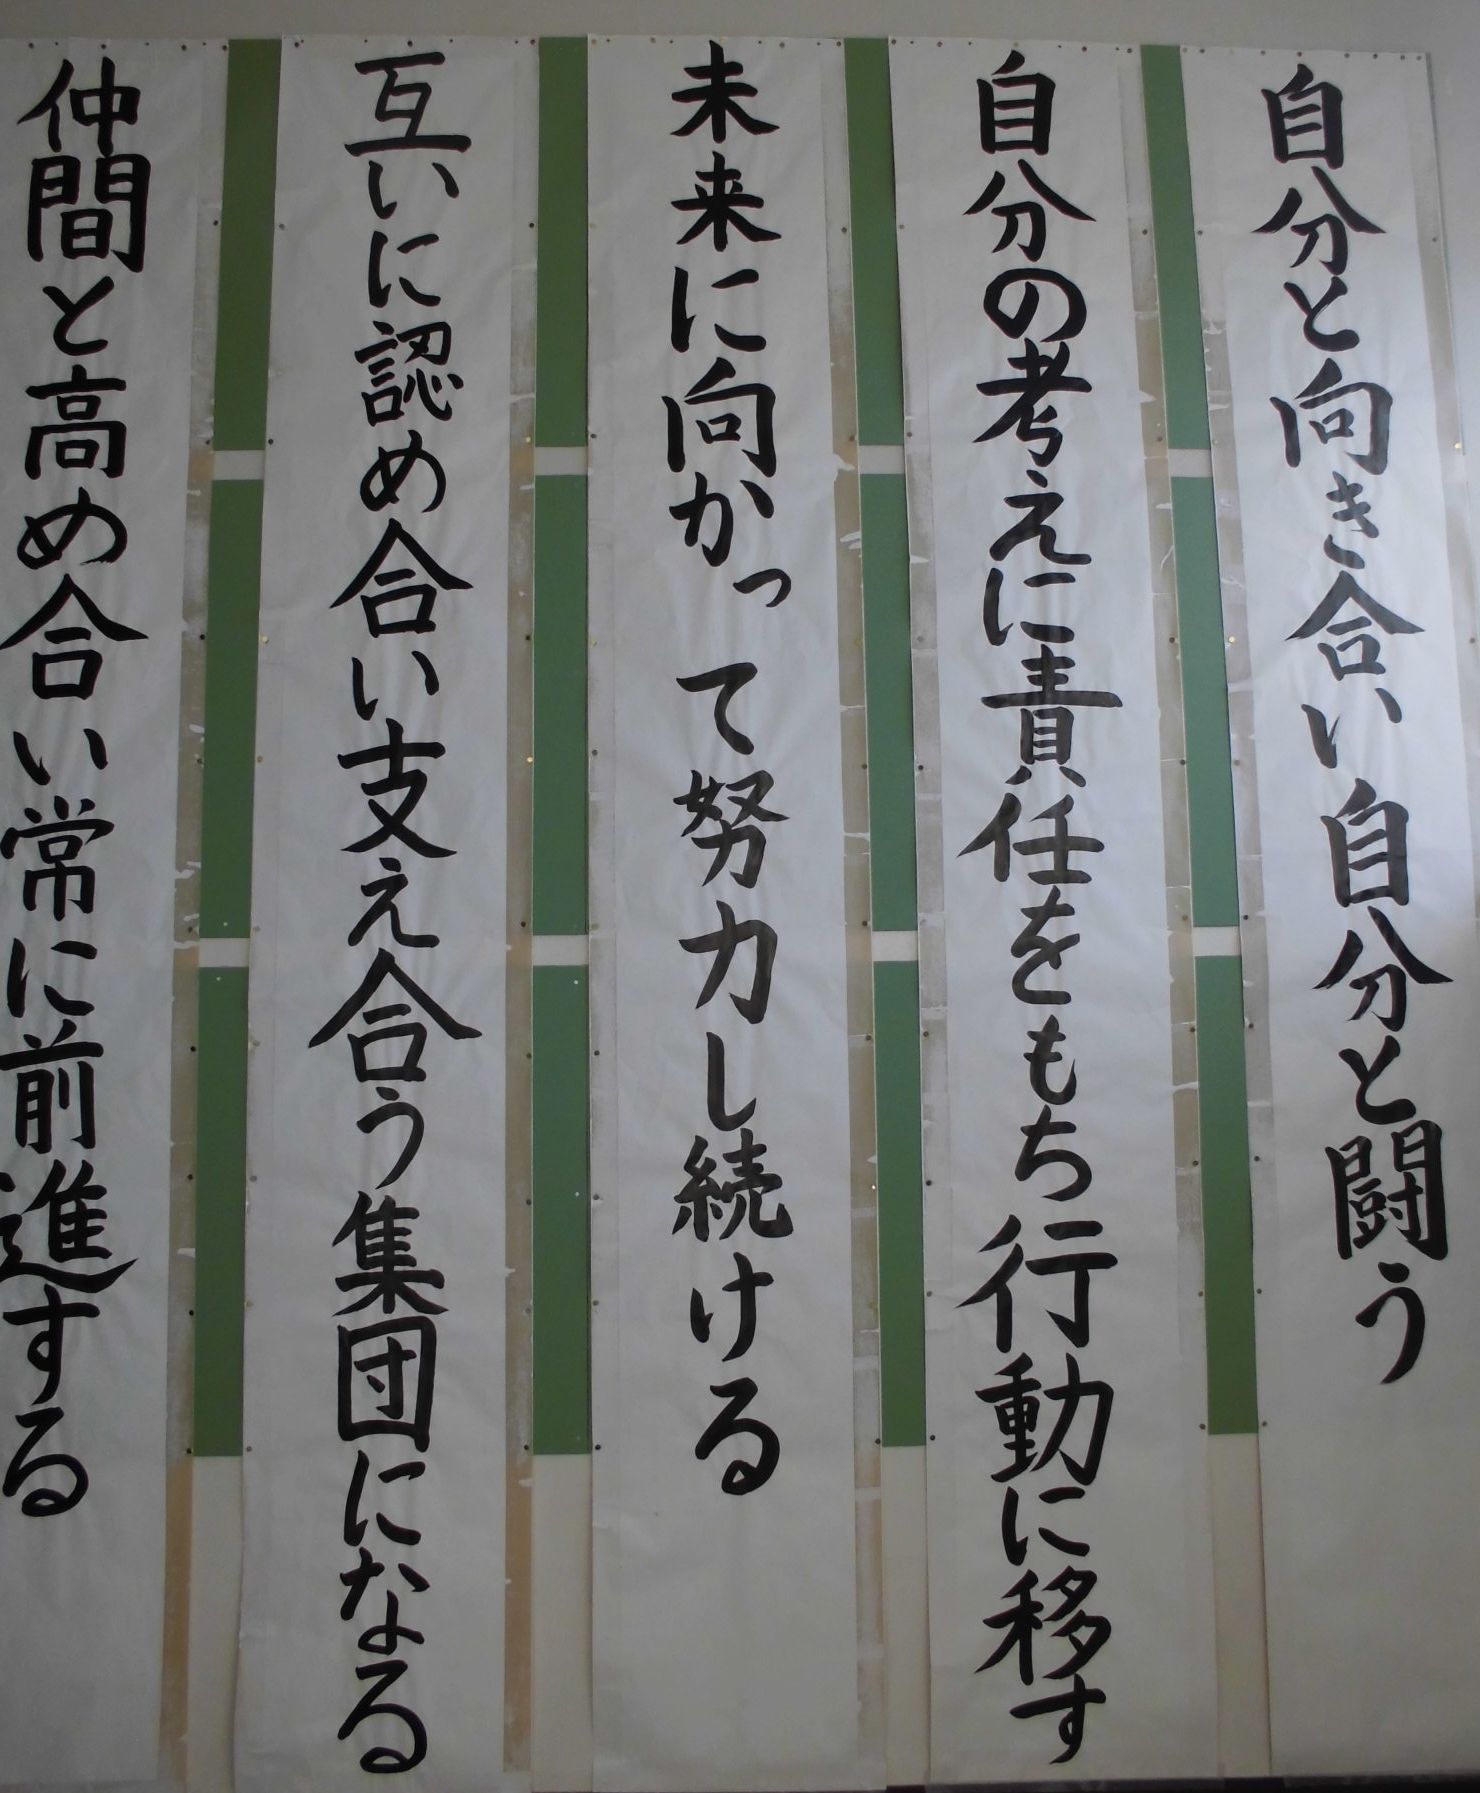 自分と向き合い自分と闘う
自分の考えに責任をもち行動に移す
未来に向かって努力し続ける
互いに認め合い支え合う集団になる
仲間と高め合い常に前進する